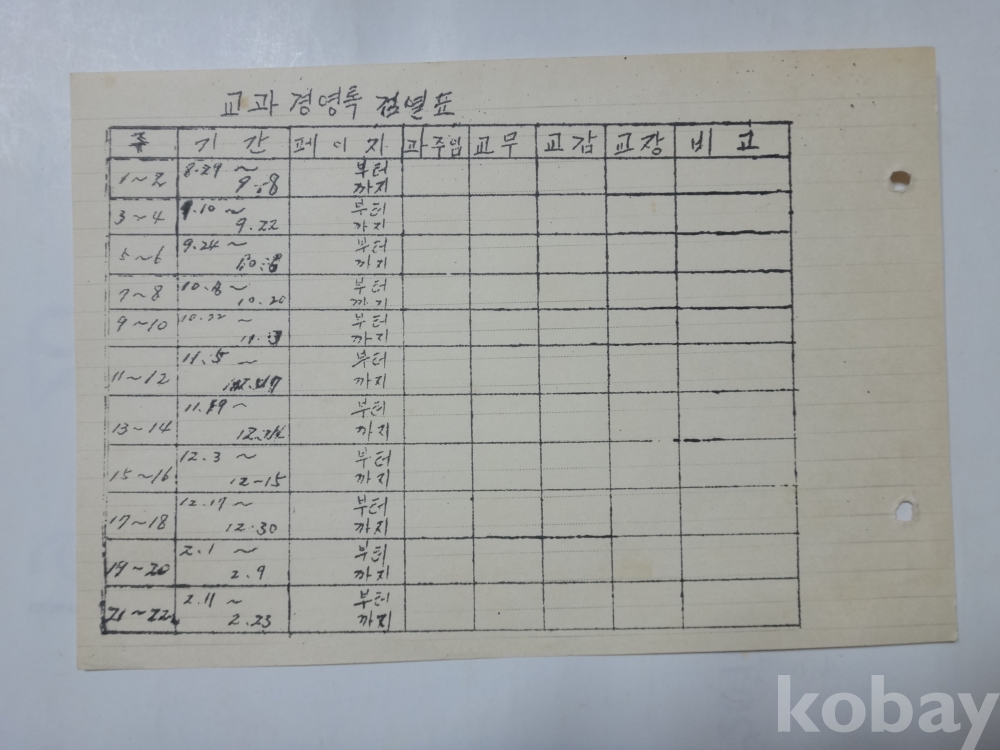 교과 경영록 검열표
주 기간 페이지 과주임 교무 교감 교장 비고
1~2 8.29 ~ 9.8 부터 까지
3~4 9.10 ~ 9.22 부터 까지
5~6 9.24 ~ 부터 까지
7~8 10.8 ~ 10.20 부터 까지
9~10 10.22 ~ 11.3 부터 까지
11~12 11.5 ~ 부터 까지
13~14 11.19 ~ 부터 까지
15~16 12.3 ~ 12-15 부터 까지
17~18 12.17 ~ 12.30 부터 까지
19~20 2.1 ~ 2.9 부터 까지
21~22 2.11 ~ 2.23 부터 까지
kobay